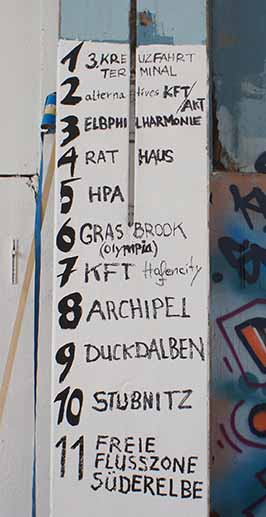 1 3.KREUZFAHRT
TERMINAL
2 alternatives KFT/AKT
3 ELBPHILHARMONIE
4 RATHAUS
5 HPA
6 GRASBROOK
(OLYMPIA)
7 KFT Hafencity
8 ARCHIPEL
9 DUCKDALBEN
10 STUBNITZ
11 FREIE
FLUSSZONE
SÜDERELBE